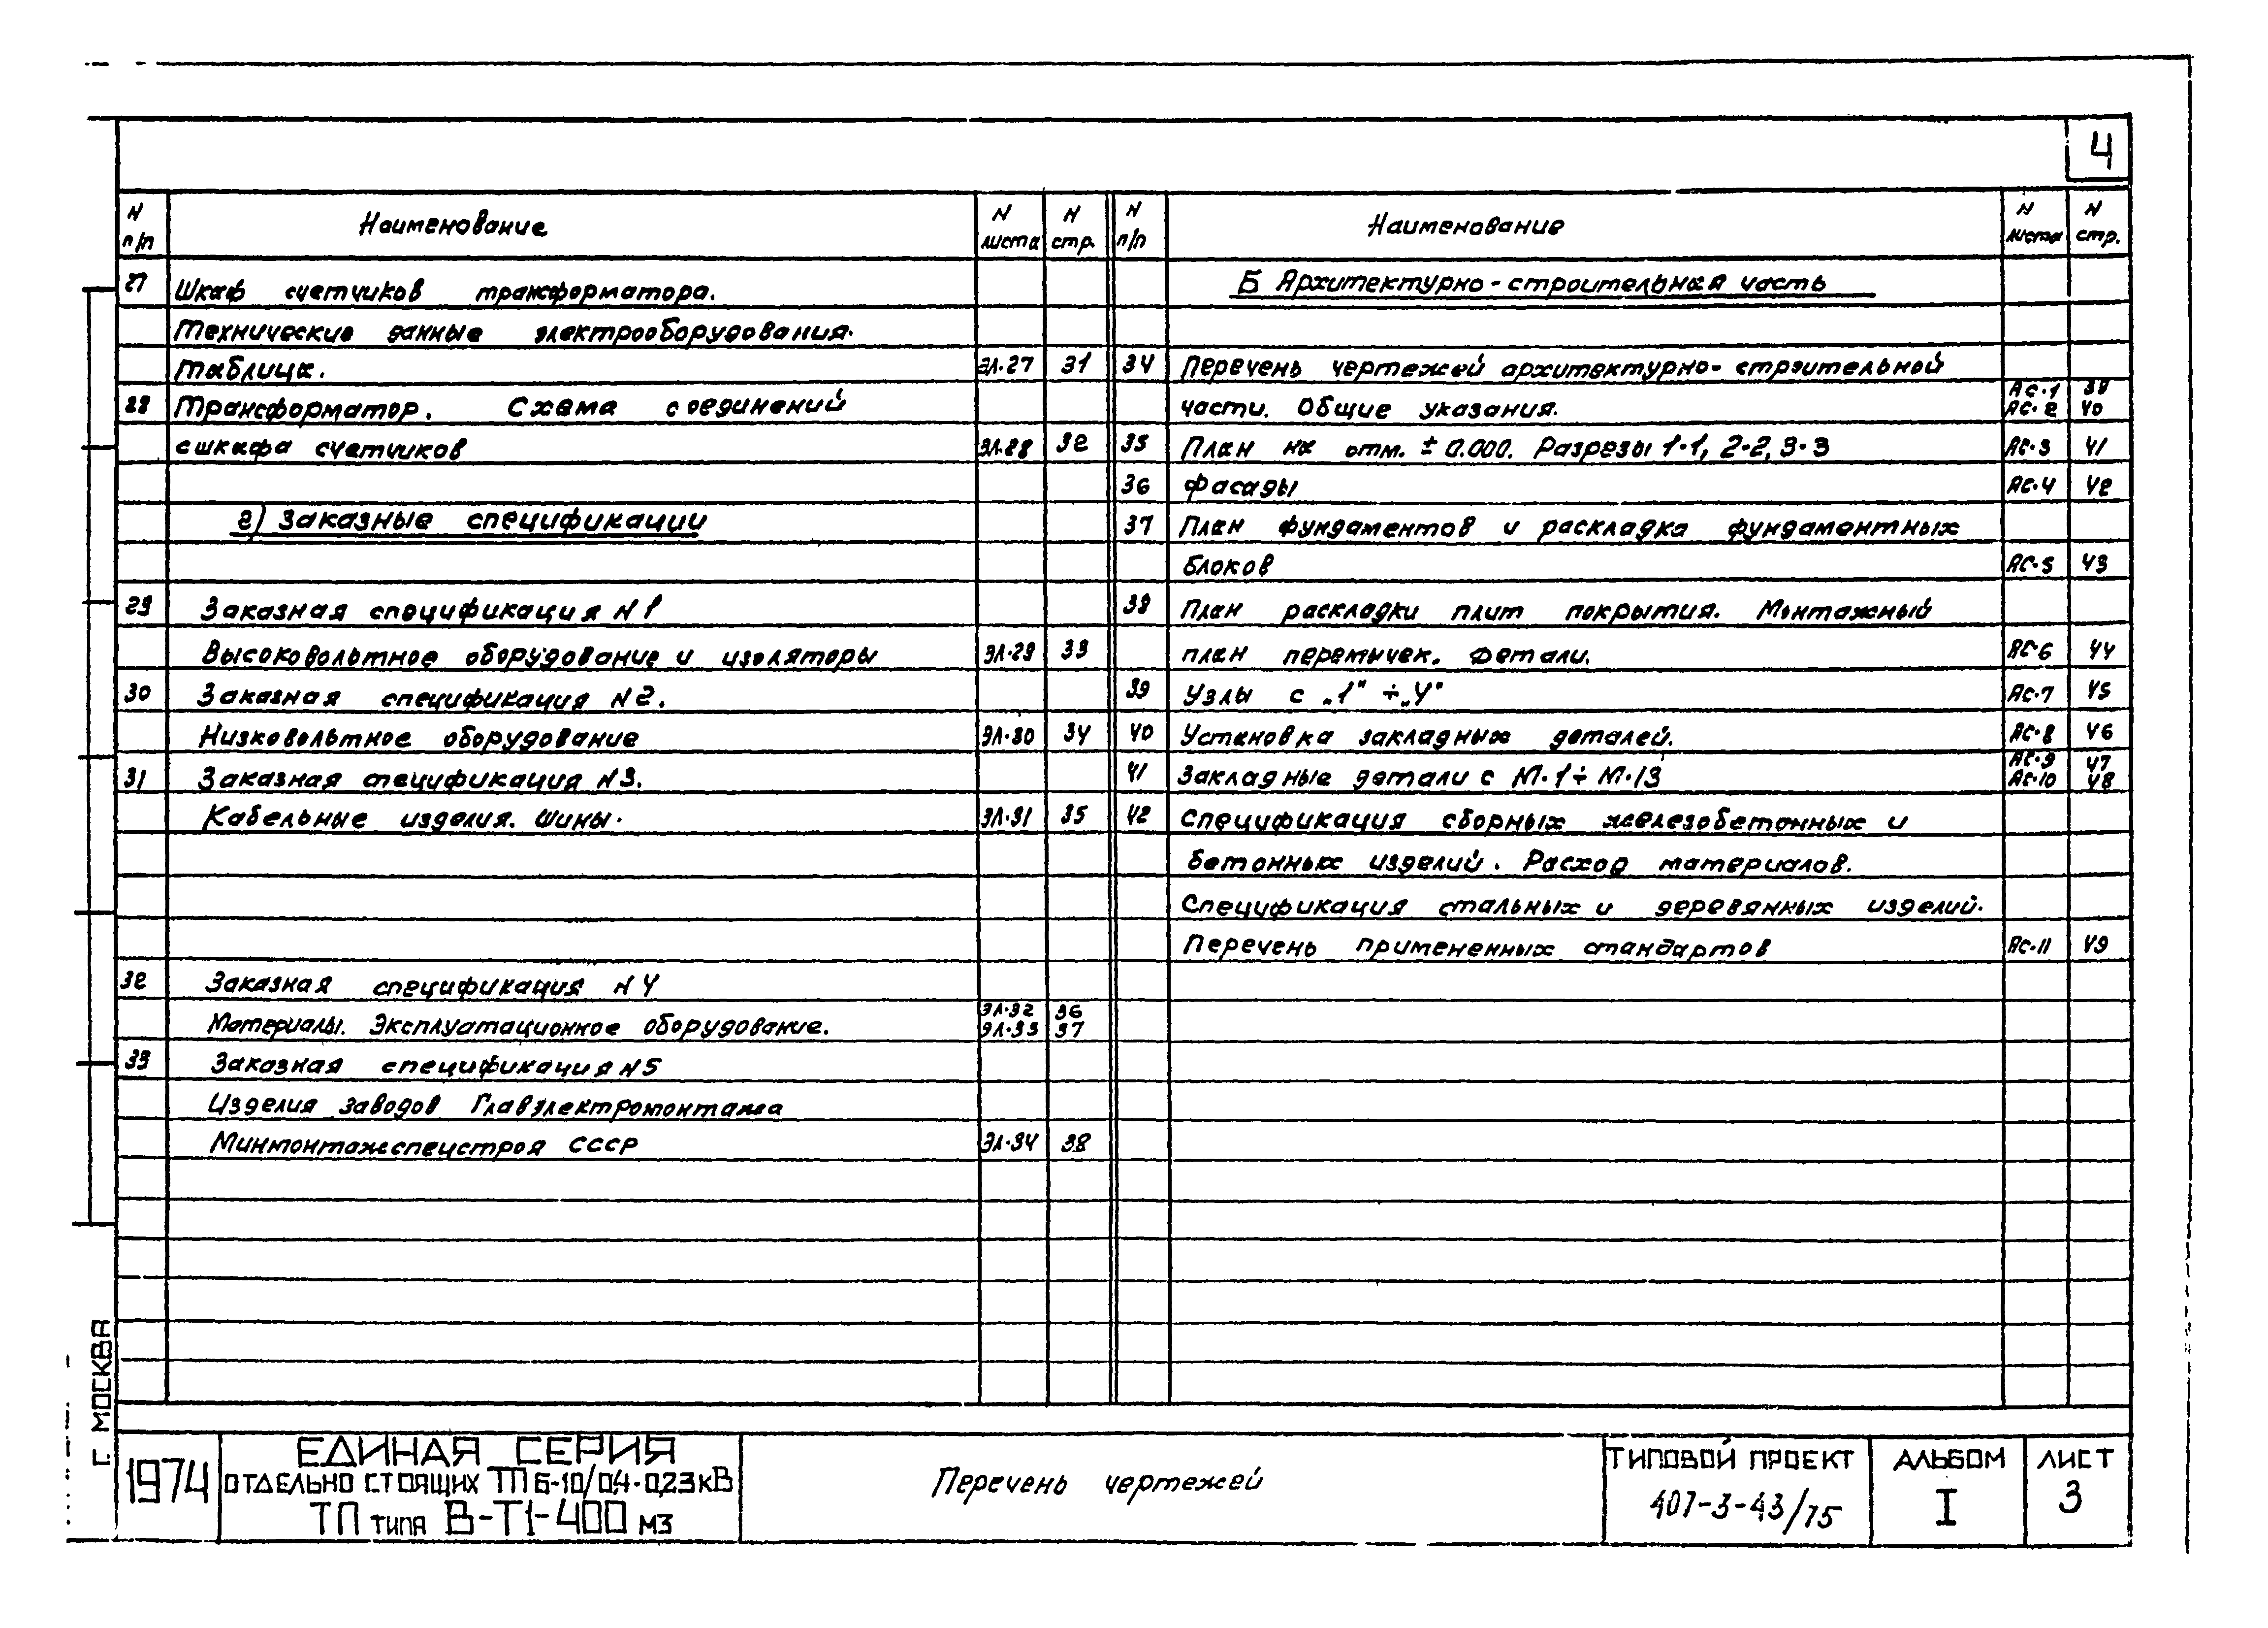 4
N п/п Наименование N листа N стр.
27 Шкаф счетчиков трансформатора.
Технические данные электрооборудования.
Таблица. ЭЛ-27 31
28 Трансформатор. Схема соединений
сшкафа счетчиков ЭЛ-28 32
г) Заказные спецификации
29 Заказная спецификация N1
Высоковольтное оборудование и изоляторы ЭЛ-29 33
30 Заказная спецификация N2.
Низковольтное оборудование ЭЛ-30 34
31 Заказная спецификация N3.
Кабельные изделия. Шины. ЭЛ-31 35
32 Заказная спецификация N4
Материалы. Эксплуатационное оборудование. ЭЛ-32 36
ЭЛ-33 37
33 Заказная спецификация N5
Изделия заводов Главэлектромонтажа
Минмонтажспецстроя СССР ЭЛ-34 38
N п/п Наименование N листа N стр.
Б Архитектурно-строительная часть
34 Перечень чертежей архитектурно-строительной
части. Общие указания. АС-1 39
АС-2 40
35 План на отм. ± 0.000. Разрезы 1-1, 2-2, 3-3 АС-3 41
36 Фасады АС-4 42
37 План фундаментов и раскладка фундаментных
блоков АС-5 43
38 План раскладки плит покрытия. Монтажный
план перемычек. Детали. АС-6 44
39 Узлы с „1" ÷ „4" АС-7 45
40 Установка закладных деталей. АС-8 46
41 Закладные детали с М-1 ÷ М-13 АС-9 47
АС-10 48
42 Спецификация сборных железобетонных и
бетонных изделий. Расход материалов.
Спецификация стальных и деревянных изделий.
Перечень примененных стандартов АС-11 49
г. МОСКВА
1974
ЕДИНАЯ СЕРИЯ
ОТДЕЛЬНО СТОЯЩИХ ТП 6-10/0,4-0,23кВ
ТП типа В-Т1-400 м3
Перечень чертежей
ТИПОВОЙ ПРОЕКТ
407-3-43/75
АЛЬБОМ
I
ЛИСТ
3